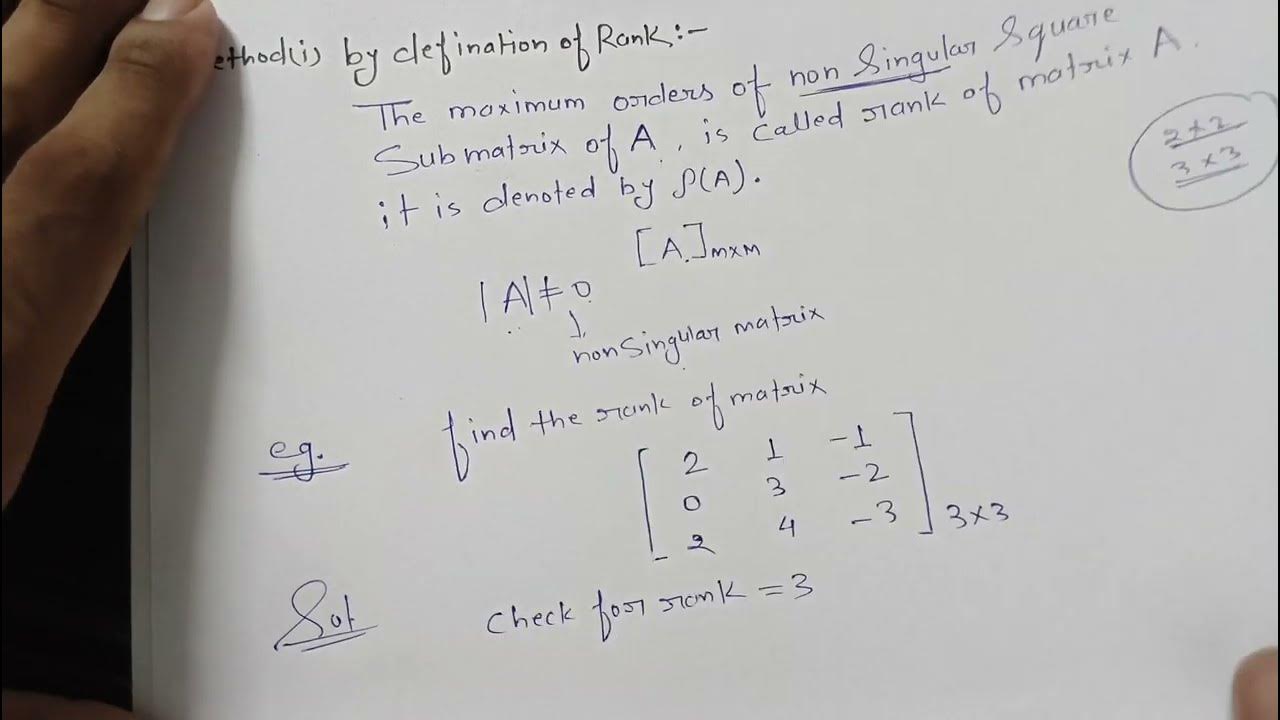 ethod(i) by defination of Rank:-
The maximum orders of non Singular Square
Submatrix of A, is called rank of matrix A.
it is denoted by ρ(A).
2×2
3×3
[A]m×m
|A|≠0
nonsingular matrix
eg. find the rank of matrix
2 1 -1
0 3 -2
2 4 -3
3×3
Sol check for rank = 3